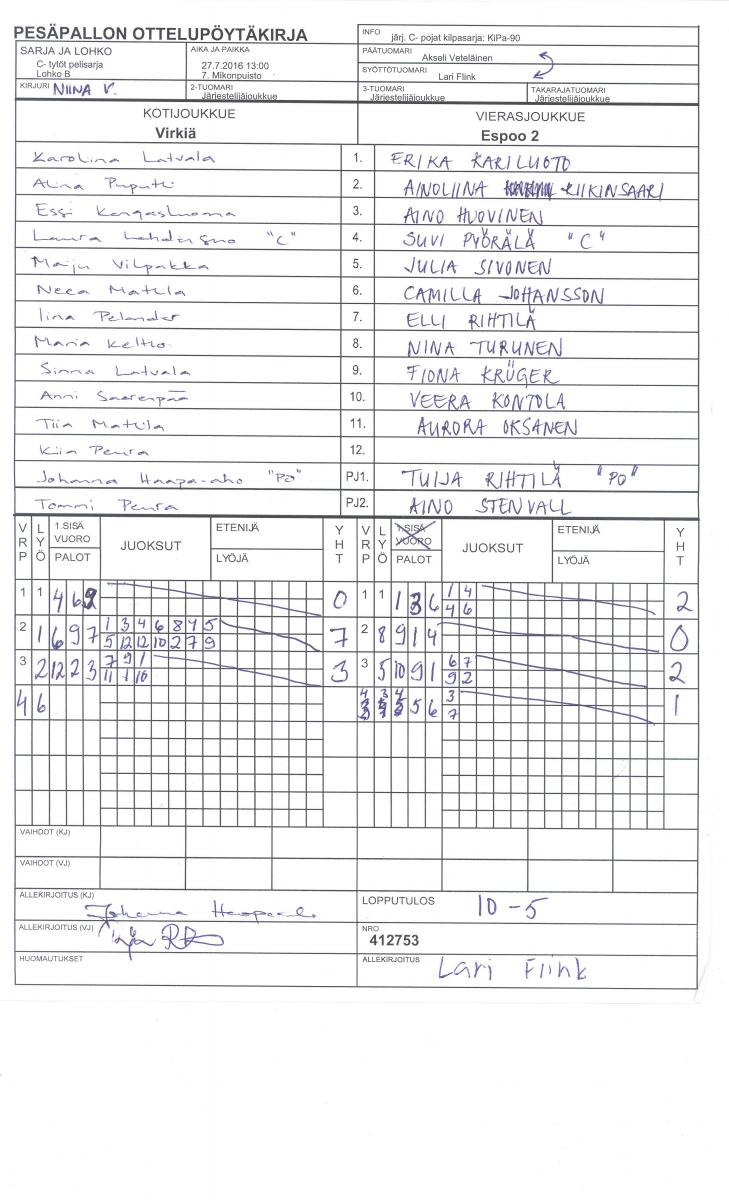 PESÄPALLON OTTELUPÖYTÄKIRJA
INFO järj. C- pojat kilpasarja: KiPa-90
SARJA JA LOHKO
C- tytöt pelisarja
Lohko B
AIKA JA PAIKKA
27.7.2016 13:00
7. Mikonpuisto
PÄÄTUOMARI
Akseli Veteläinen
SYÖTTÖTUOMARI
Lari Flink
KIRJURI NIINA V.
2-TUOMARI
Järjestelijäjoukkue
3-TUOMARI
Järjestelijäjoukkue
TAKARAJATUOMARI
Järjestelijäjoukkue
KOTIJOUKKUE
Virkiä
VIERASJOUKKUE
Espoo 2
Karolina Latvala 1. ERIKA KARILUOTO
Alina Puputti 2. AINOLIINA RIIKINSAARI
Essi Kangasluoma 3. AINO HUOVINEN
Laura "C" 4. SUVI PYÖRÄLÄ "C"
Maiju Vilpakka 5. JULIA SIVONEN
Neea Mattila 6. CAMILLA JOHANSSON
Iina Pelander 7. ELLI RIHTILÄ
Maria Keltto 8. NINA TURUNEN
Sinna Latvala 9. FIONA KRÜGER
Anni Saarenpää 10. VEERA KONTOLA
Tiia Mattila 11. AURORA OKSANEN
Kiia Peura 12.
Johanna Haapa-aho "PO" PJ1. TUIJA RIHTILÄ "PO"
Tommi Peura PJ2. AINO STENVALL
VRP LYÖ 1.SISÄ VUORO PALOT JUOKSUT ETENIJÄ LYÖJÄ YHT VRP LYÖ 1.SISÄ VUORO PALOT JUOKSUT ETENIJÄ LYÖJÄ YHT
1 1 4 6 9 0 1 1 1 3 6 1 4 2
4 6
2 1 6 9 7 1 3 4 6 8 4 5 7 2 8 9 1 4 0
5 12 12 10 2 7 9
3 2 12 2 3 7 9 1 3 3 5 10 9 1 6 7 2
11 1 10 9 2
4 6 4 3 4 5 6 3 1
7
VAIHDOT (KJ)
VAIHDOT (VJ)
ALLEKIRJOITUS (KJ)
Johanna Haapa-aho
LOPPUTULOS 10-5
ALLEKIRJOITUS (VJ)
NRO
412753
HUOMAUTUKSET
ALLEKIRJOITUS Lari Flink